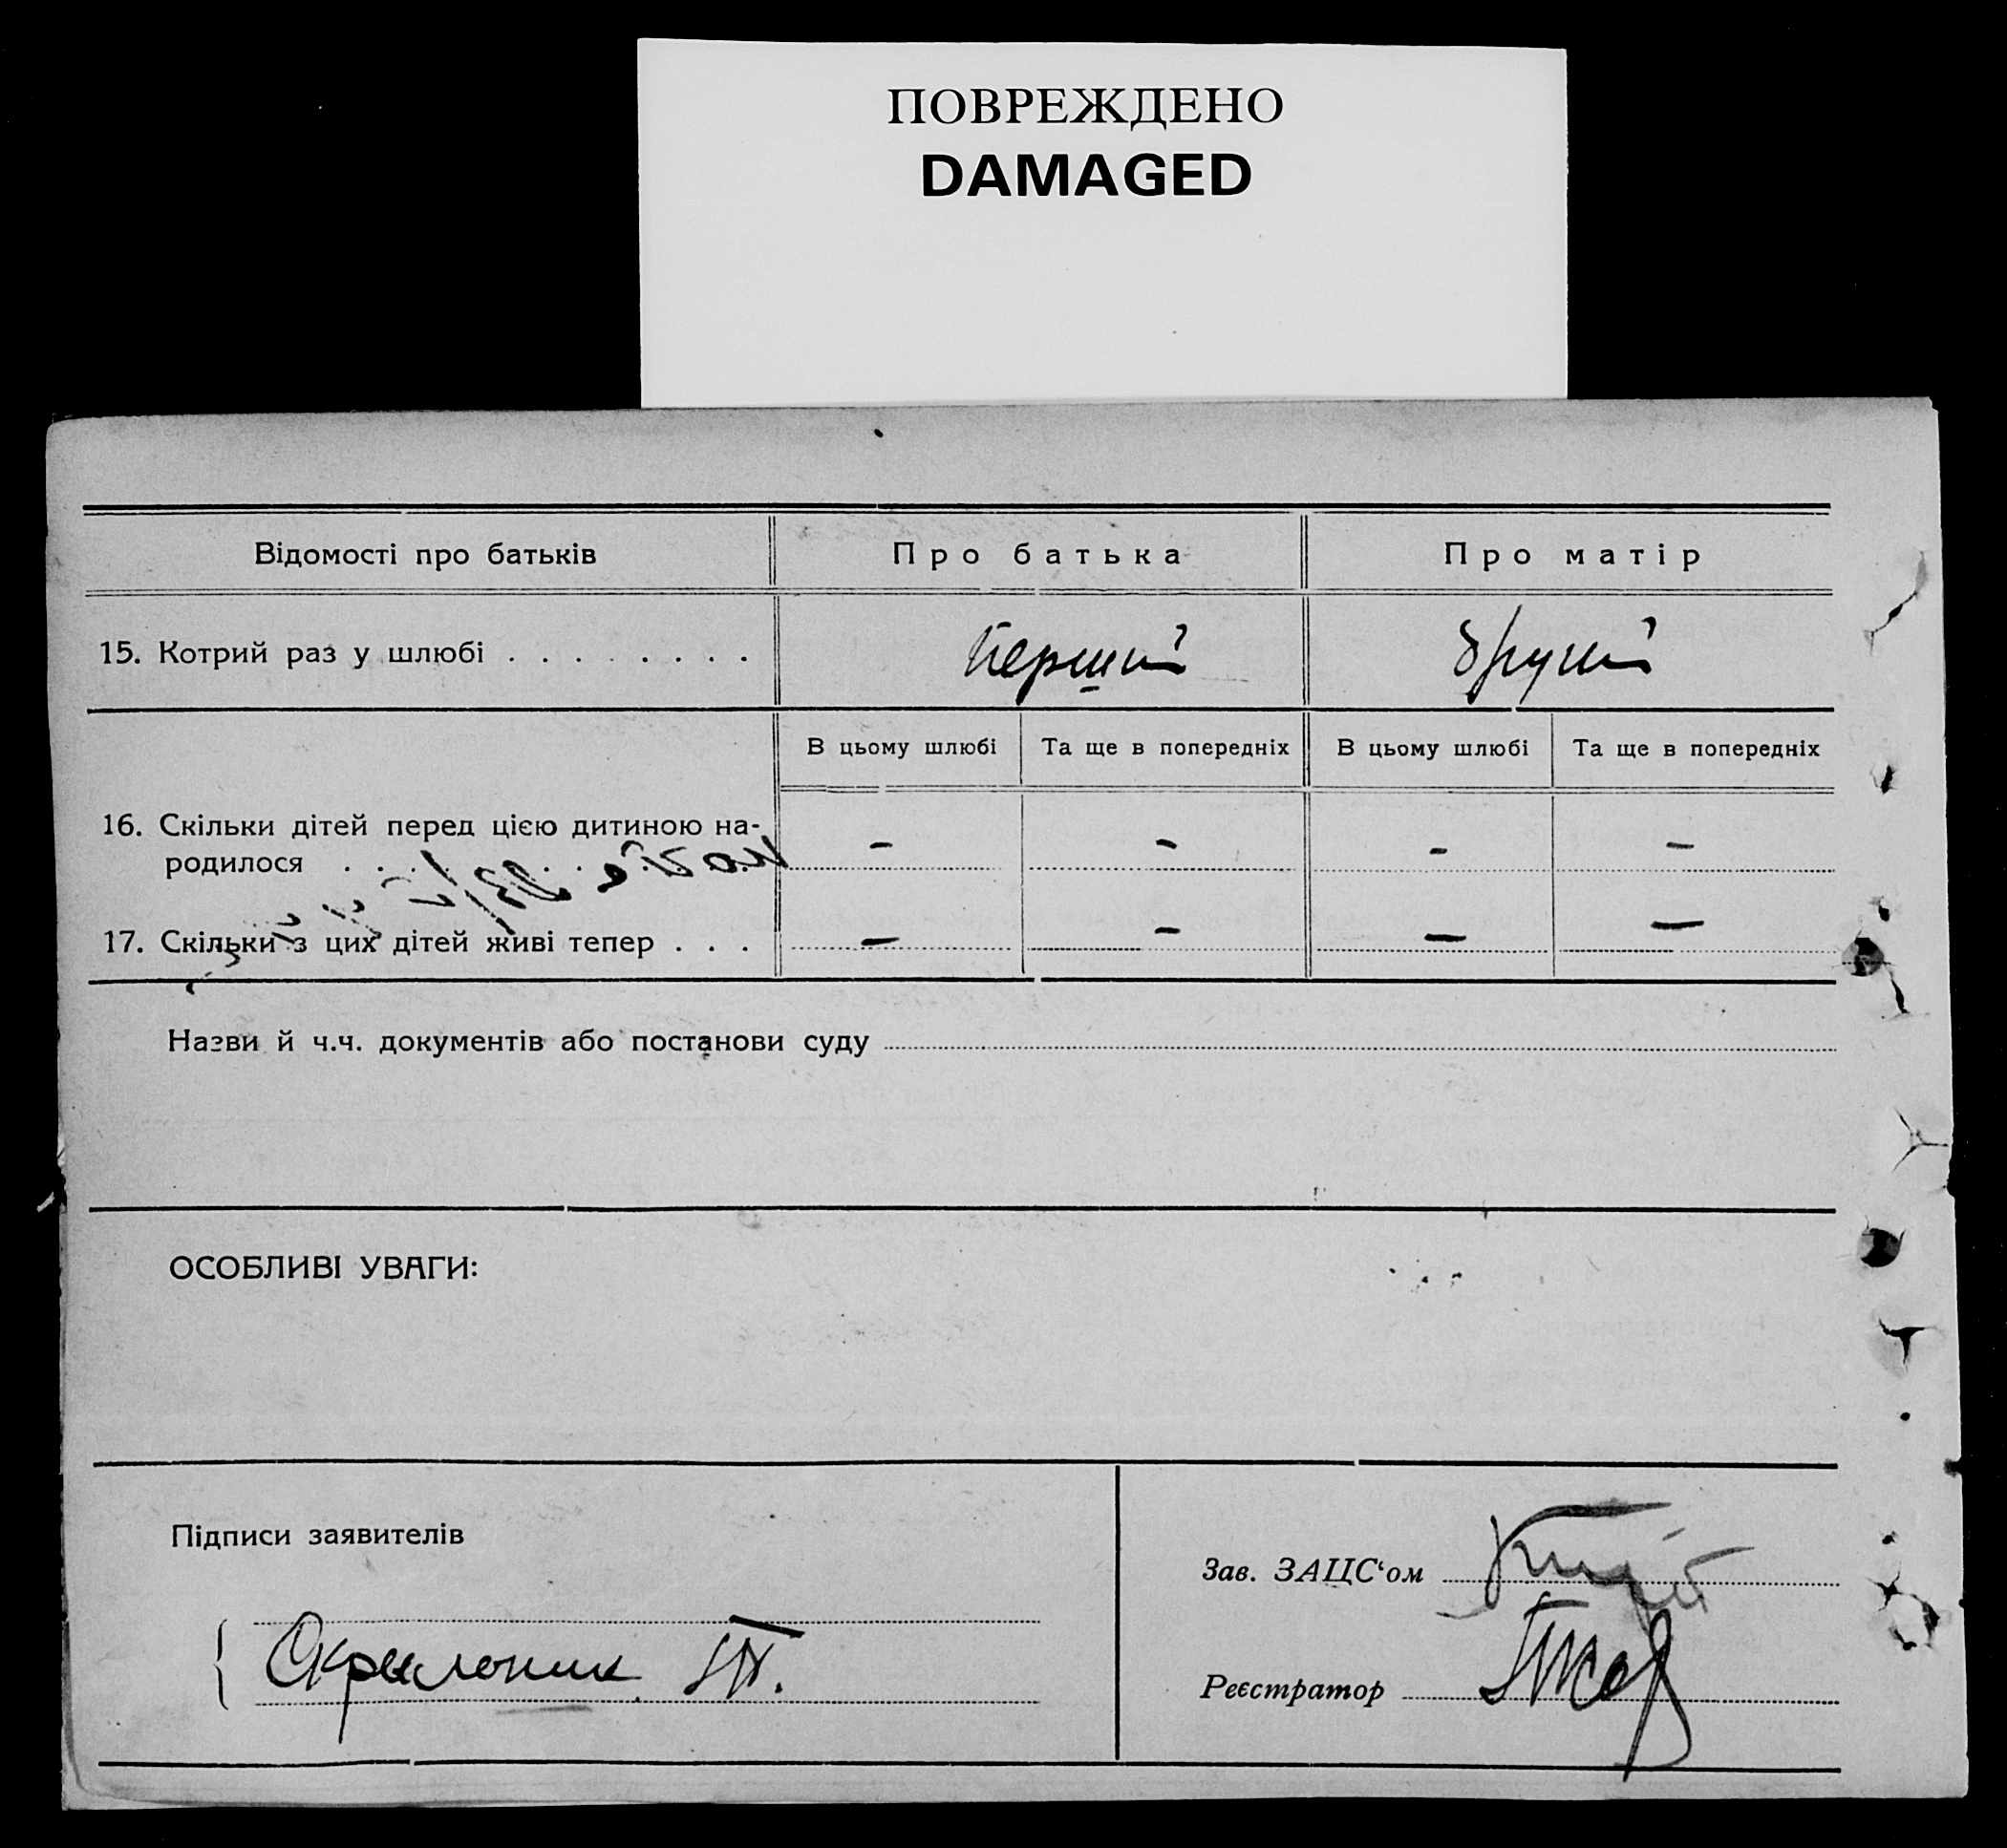 ПОВРЕЖДЕНО
DAMAGED
Відомості про батьків
Про батька
Про матір
15. Котрий раз у шлюбі . . . . . . . .
Перший
Другий
В цьому шлюбі
Та ще в попередніх
В цьому шлюбі
Та ще в попередніх
16. Скільки дітей перед цією дитиною на-
родилося . . .
-
-
-
-
17. Скільки з цих дітей живі тепер . . .
-
-
-
-
Назви й ч.ч. документів або постанови суду
ОСОБЛИВІ УВАГИ:
Підписи заявителів
Зав. ЗАЦС‘ом
Реєстратор